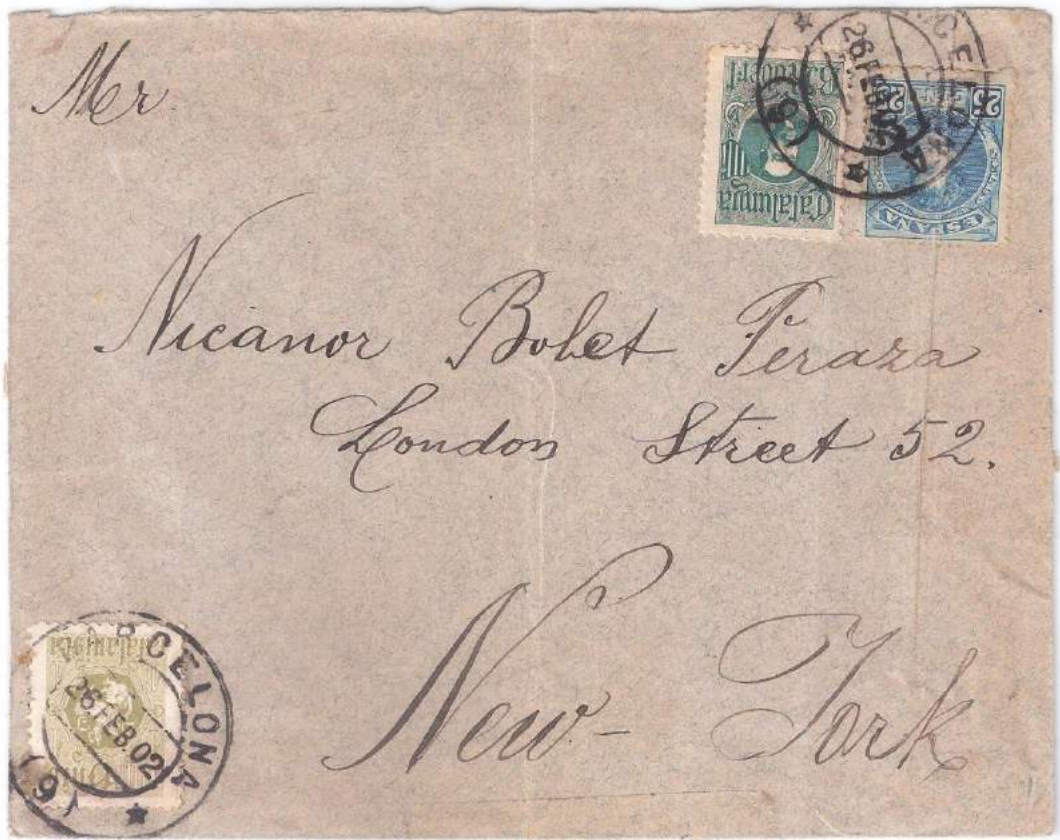 Mer
Nicanor Bolet Peraza
London Street 52.
New-York
Catalunya
ESPAÑA
25 25
BARCELONA
26 FEB 02
(9)
BARCELONA
26 FEB 02
(9)